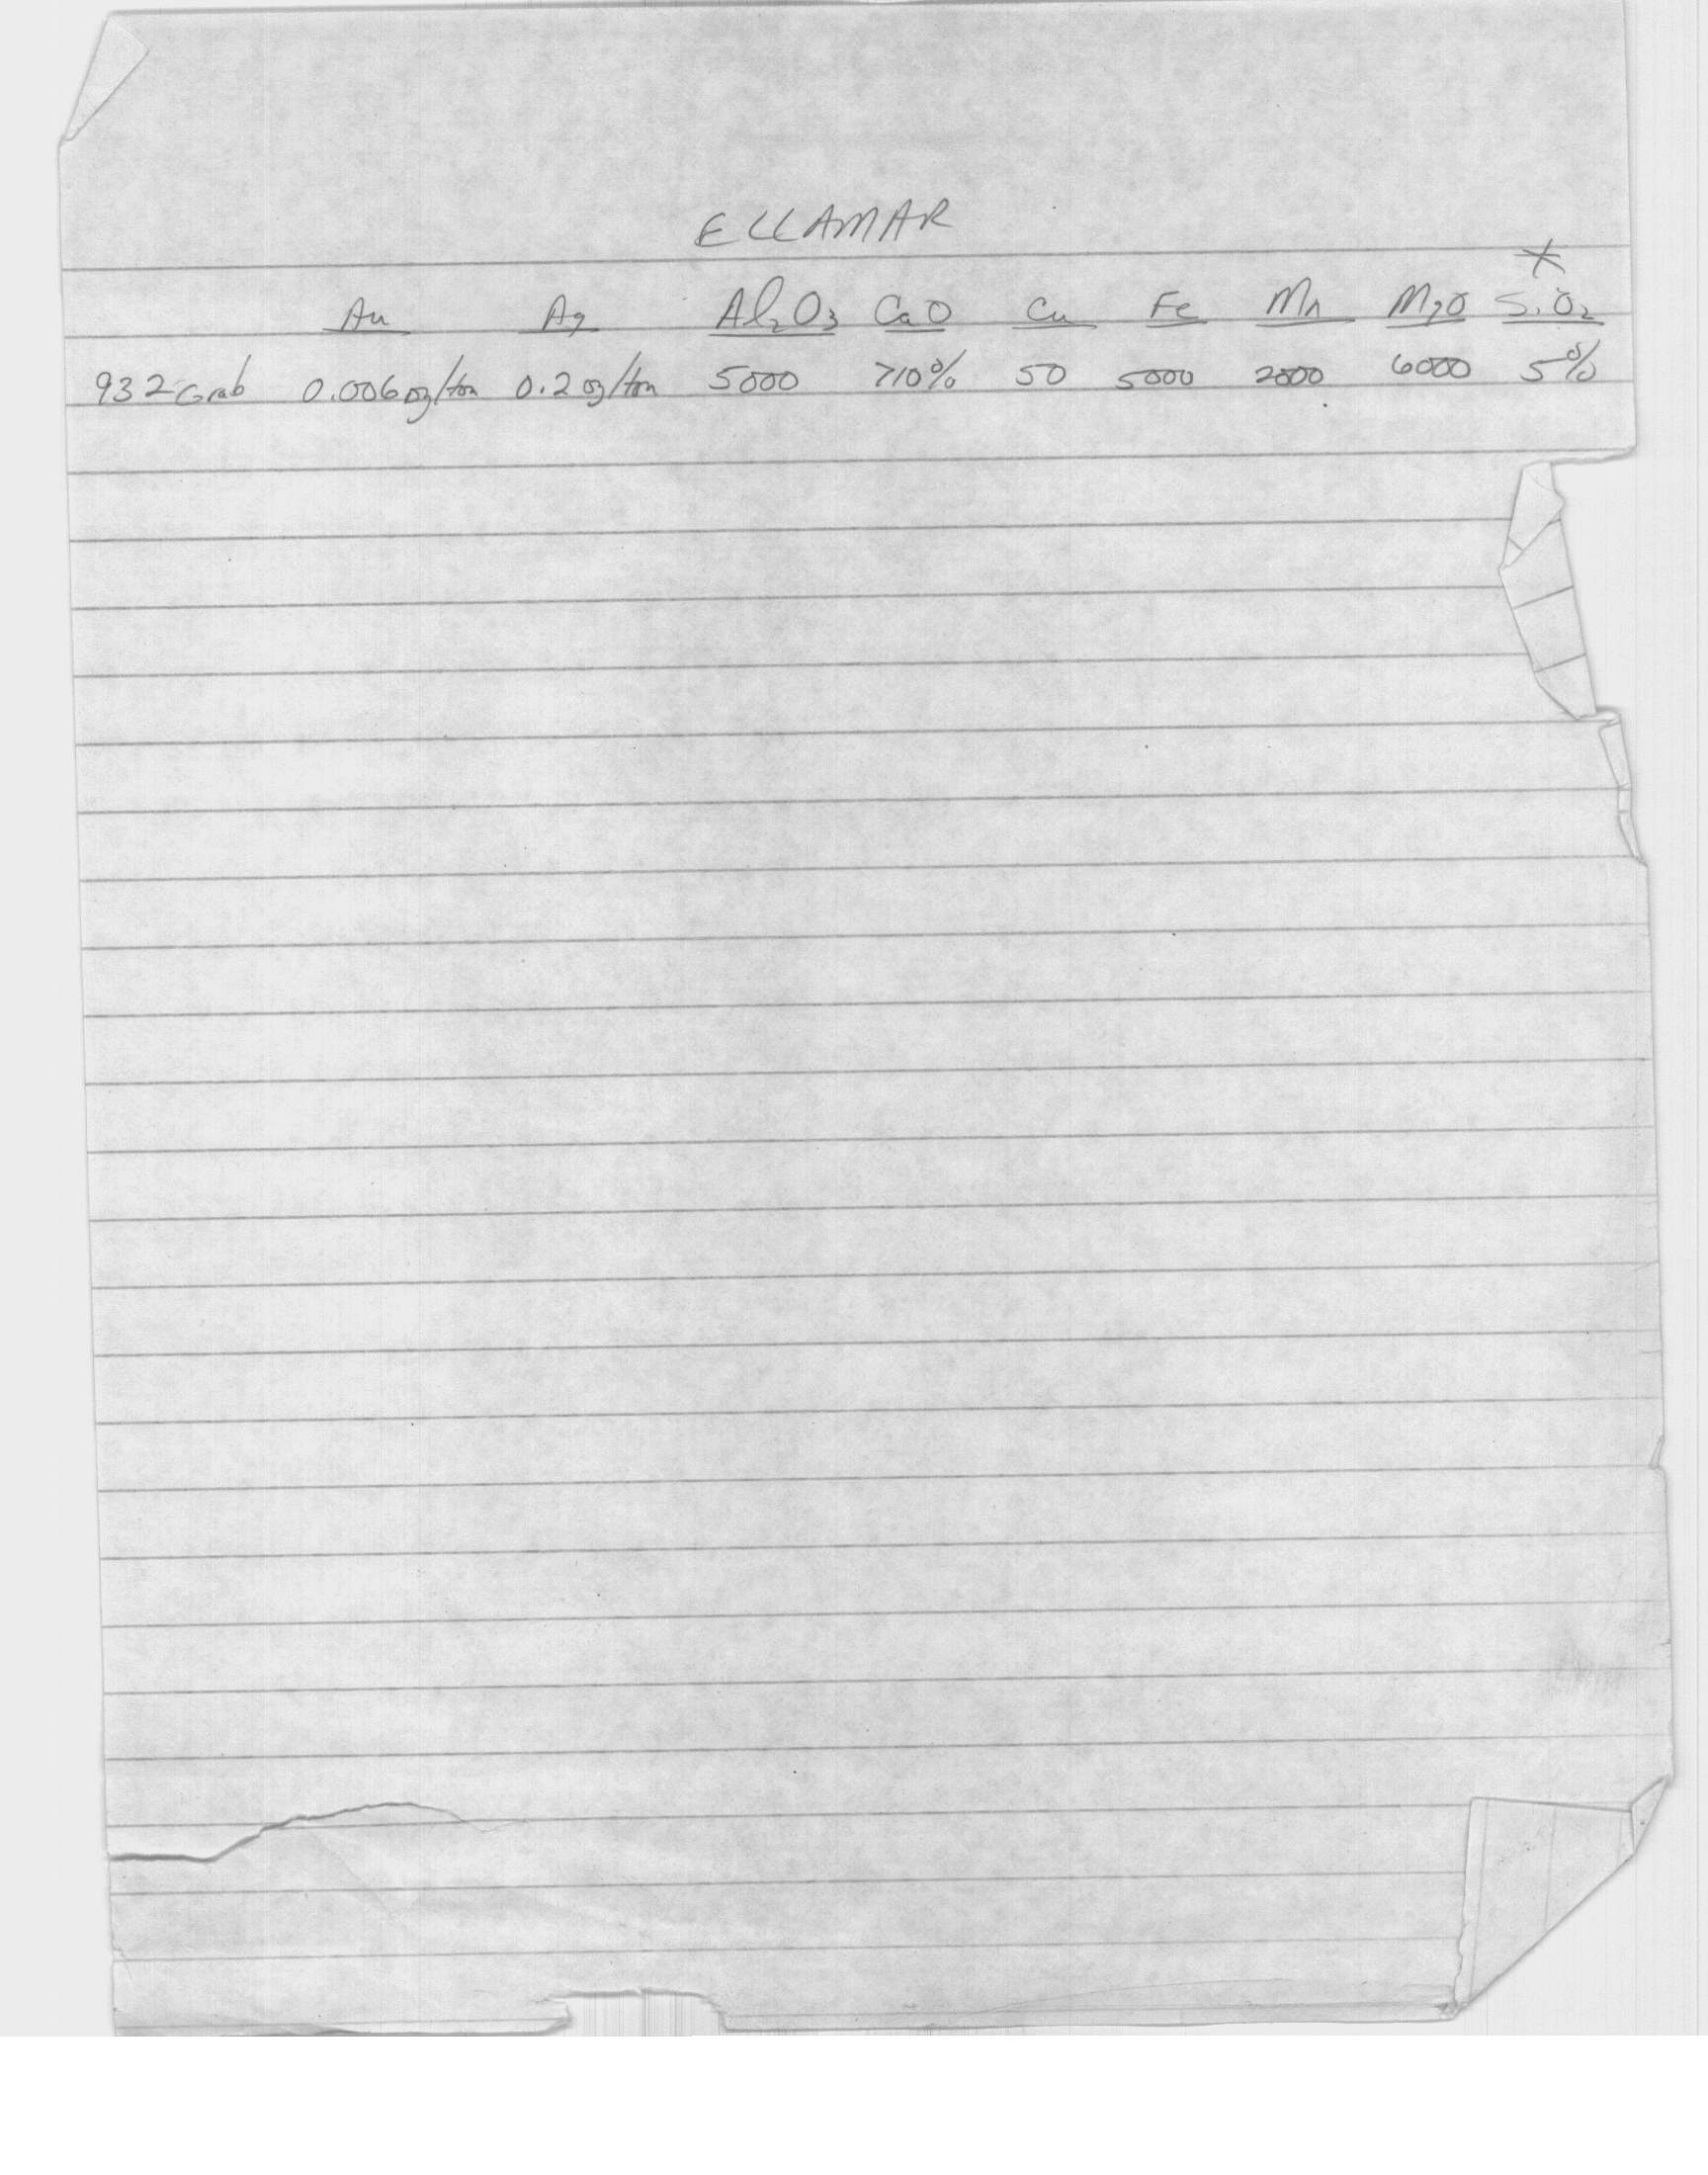 ELLAMAR
*
Au Ag Al2O3 CaO Cu Fe Mn MgO SiO2
932 Grab 0.006 oz/ton 0.2 oz/ton 5000 >10% 50 5000 2000 6000 5%